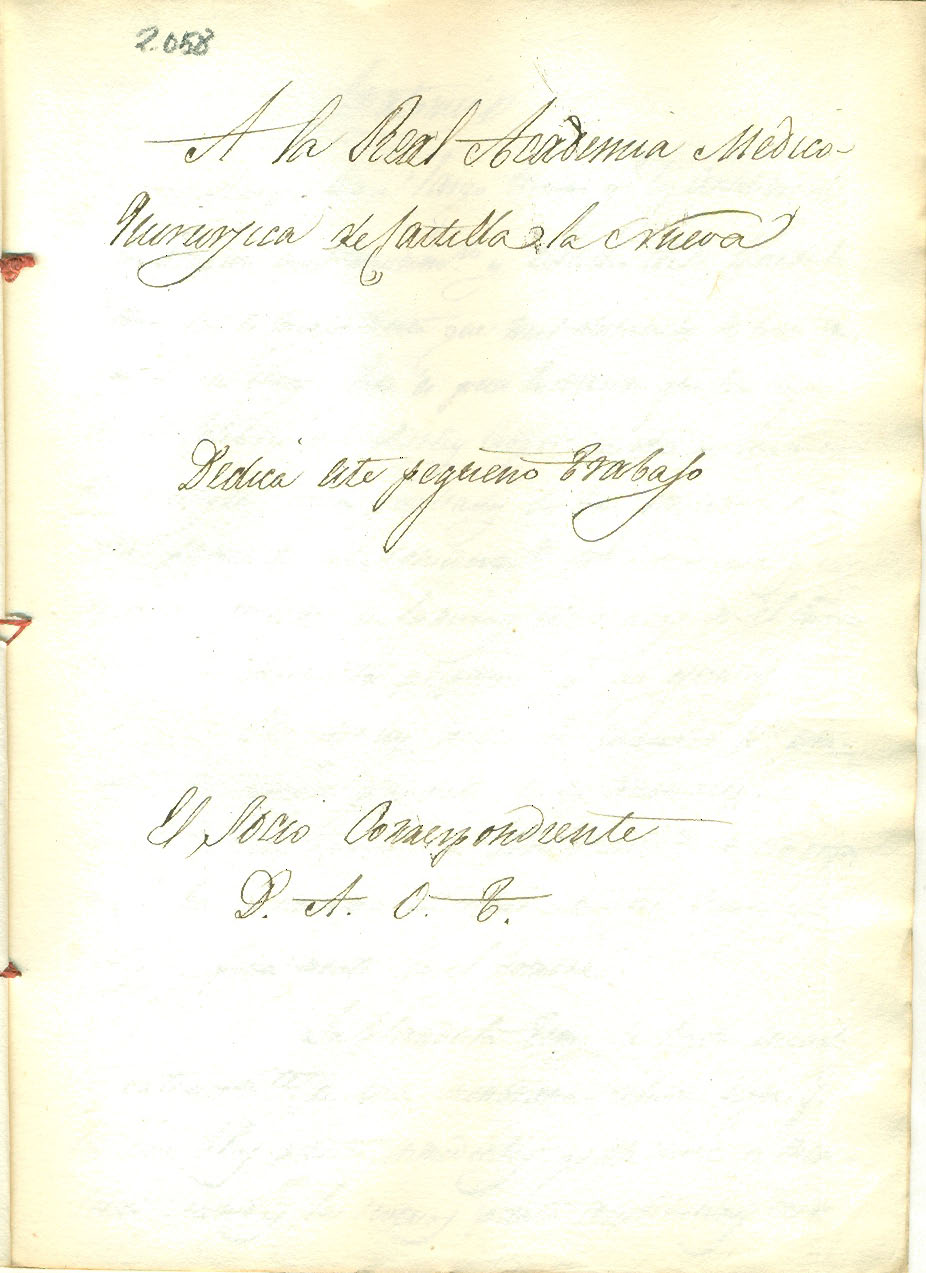 2.058
A la Real Academia Medico-
Quirurjica de Castilla la Nueva
Dedica este pequeño trabajo
El Socio Correspondiente
D. A. O. T.